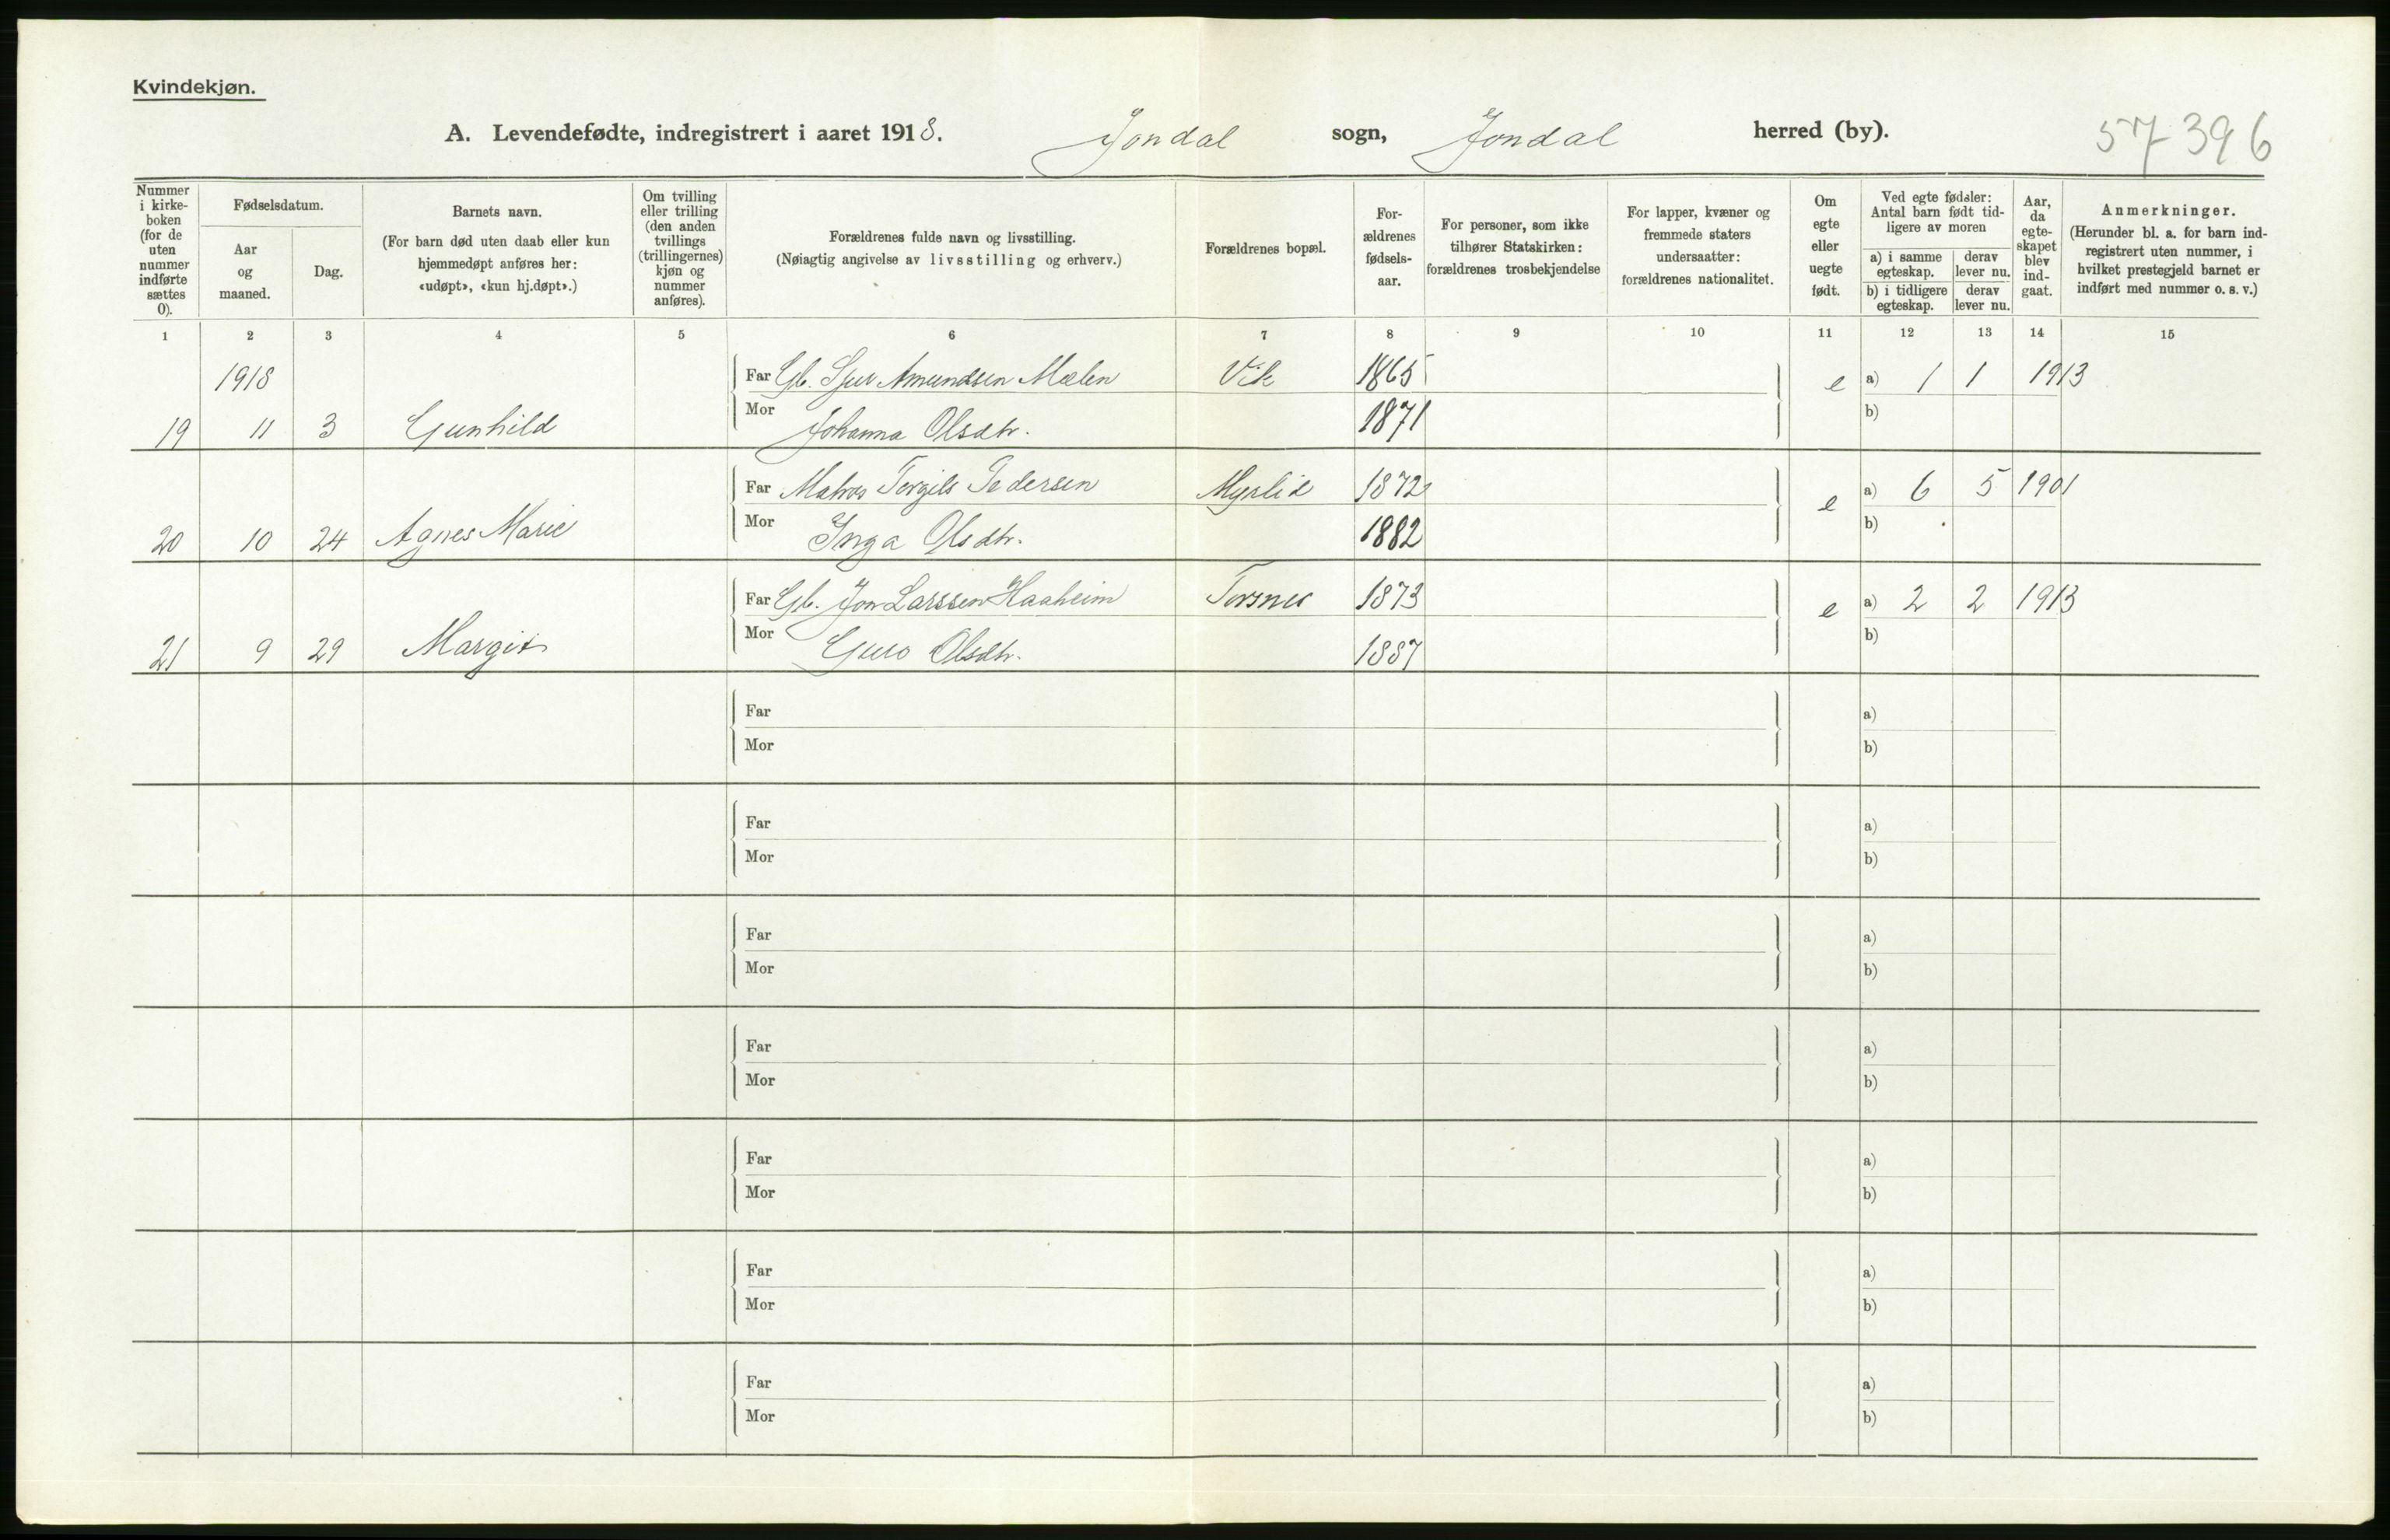 Kvindekjøn.
A. Levendefødte, indregistrert i aaret 1918. Jondal sogn, Jondal herred (by). 57 396
Nummer i kirke-boken (for de uten nummer indførte sættes 0).
Fødselsdatum.
Aar og maaned.
Dag.
Barnets navn.
(For barn død uten daab eller kun hjemmedøpt anføres her: «udøpt», «kun hj.døpt».)
Om tvilling eller trilling (den anden tvillings (trillingernes) kjøn og nummer anføres).
Forældrenes fulde navn og livsstilling.
(Nøiagtig angivelse av livsstilling og erhverv.)
Forældrenes bopæl.
For-ældrenes fødsels-aar.
For personer, som ikke tilhører Statskirken: forældrenes trosbekjendelse
For lapper, kvæner og fremmede staters undersaatter: forældrenes nationalitet.
Om egte eller uegte født.
Ved egte fødsler: Antal barn født tid-ligere av moren
a) i samme egteskap.
derav lever nu.
b) i tidligere egteskap.
derav lever nu.
Aar, da egte-skapet blev ind-gaat.
Anmerkninger.
(Herunder bl. a. for barn ind-registrert uten nummer, i hvilket prestegjeld barnet er indført med nummer o. s. v.)
1 2 3 4 5 6 7 8 9 10 11 12 13 14 15
1918 Far Gb. Sjur Amundsen Mælen Vik 1865 e a) 1 1 1913
19 11 3 Gunhild Mor Johanna Olsdtr. 1871 b)
Far Matros Torgils Pedersen Myrlid 1872 e a) 6 5 1901
20 10 24 Agnes Marie Mor Inga Olsdtr. 1882 b)
Far Gb. Jon Larssen Haaheim Torsnes 1873 e a) 2 2 1913
21 9 29 Margit Mor Guro Olsdtr. 1887 b)
Far a)
Mor b)
Far a)
Mor b)
Far a)
Mor b)
Far a)
Mor b)
Far a)
Mor b)
Far a)
Mor b)
Far a)
Mor b)